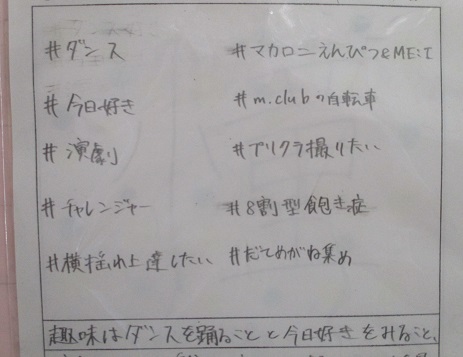 #ダンス #マカロニえんぴつ&ME:I
#今日好き #m.clubの自転車
#演劇 #プリクラ撮りたい
#チャレンジャー #8割型飽き症
#横揺れ上達したい #だてめがね集め
趣味はダンスを踊ることと今日好きをみること、